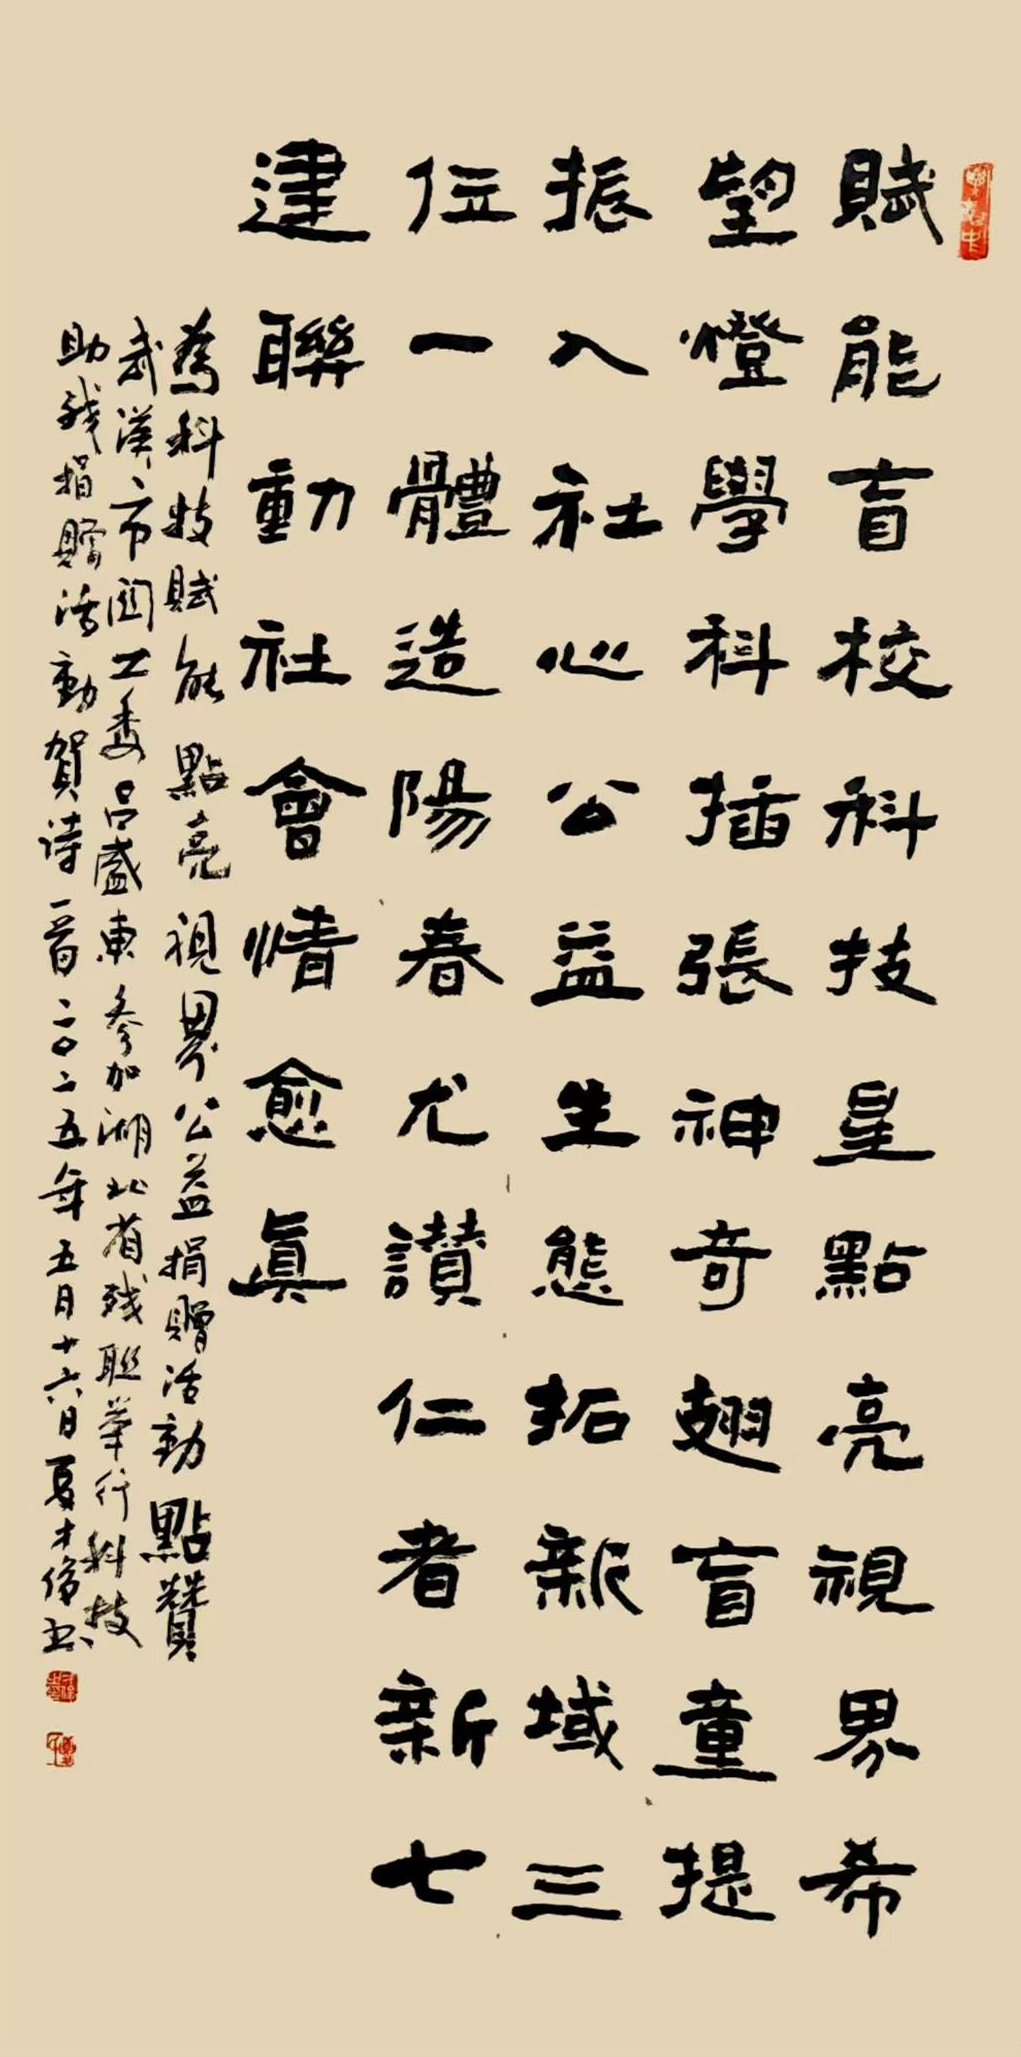 賦能盲校科技星點亮視界希
望燈學科插張神奇翅盲童提
振入社心公益生態拓新域三
位一體造陽春尤讃仁者新七
建聯動社會情愈眞
為科技賦能點亮視界公益捐贈活動點贊
武漢市関工委吕盛東參加湖北省残联举行科技
助残捐贈活動賀诗一首二〇二五年五月十六日夏才偉书